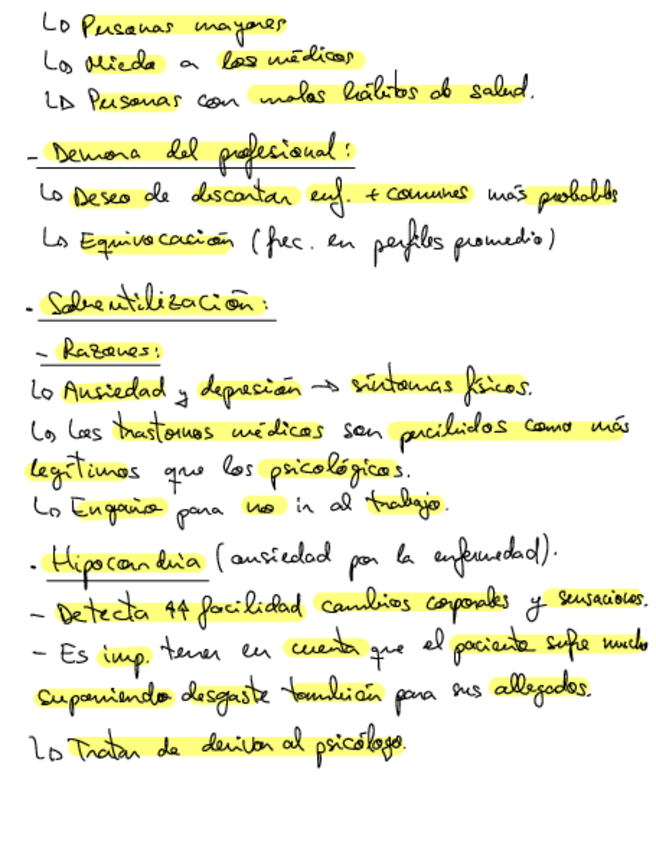 ↳ Personas mayores
↳ Miedo a los médicos
↳ Personas con malos hábitos de salud.
- Demora del profesional:
↳ Deseo de descartar enf. + comunes más probables
↳ Equivocación (frec. en perfiles promedio)
· Sobreutilización:
- Razones:
↳ Ansiedad y depresión → síntomas físicos.
↳ Los trastornos médicos son percibidos como más
legítimos que los psicológicos.
↳ Engaño para no ir al trabajo.
· Hipocondria (ansiedad por la enfermedad).
- Detecta ++ facilidad cambios corporales y sensaciones.
- Es imp. tener en cuenta que el paciente sufre mucho
suponiendo desgaste también para sus allegados.
↳ Tratar de derivar al psicólogo.